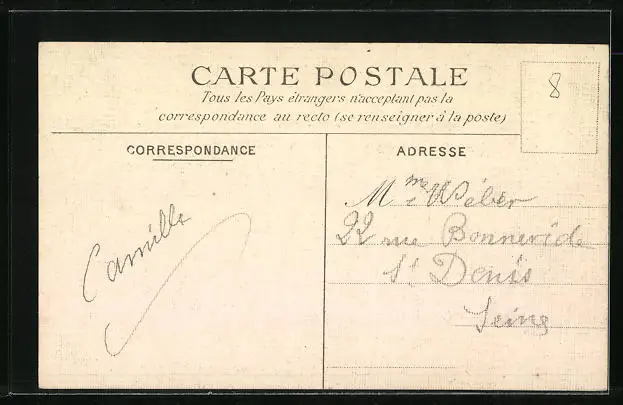 CARTE POSTALE
Tous les Pays étrangers n'acceptant pas la
correspondance au recto (se renseigner à la poste)
8
CORRESPONDANCE
ADRESSE
Camille
Mme Wéber
22 rue
St Denis
Seine